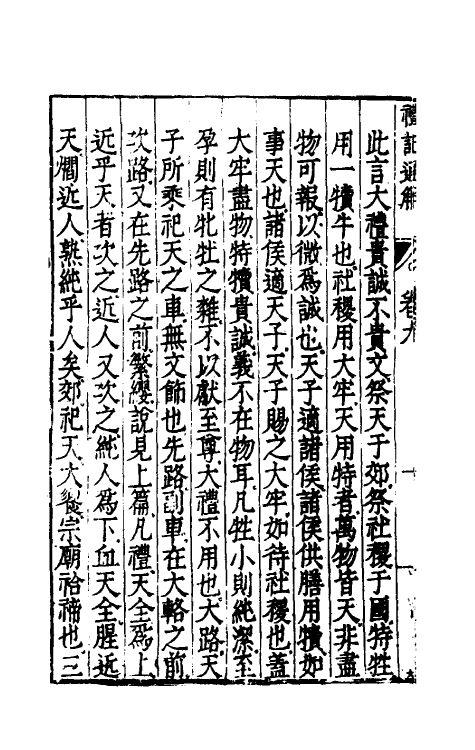 禮記通解 卷九
此言大禮貴誠不貴文祭天于郊祭社稷于國特牲
用一犢牛也社稷用大牢天用特者萬物皆天非盡
物可報以微爲誠也天子適諸侯諸侯供膳用犢如
事天也諸侯適天子天子賜之大牢如待社稷也蓋
大牢盡物特犢貴誠義不在物耳凡牲小則純潔至
孕則有牝牡之雜不以獻至尊大禮不用也大路天
子所乘祀天之車無文飾也先路副車在大輅之前
次路又在先路之前繁纓說見上篇凡禮天全爲上
近乎天者次之近人又次之純人爲下血天全腥近
天爓近人熟純乎人矣郊祀天大饗宗廟祫禘也三